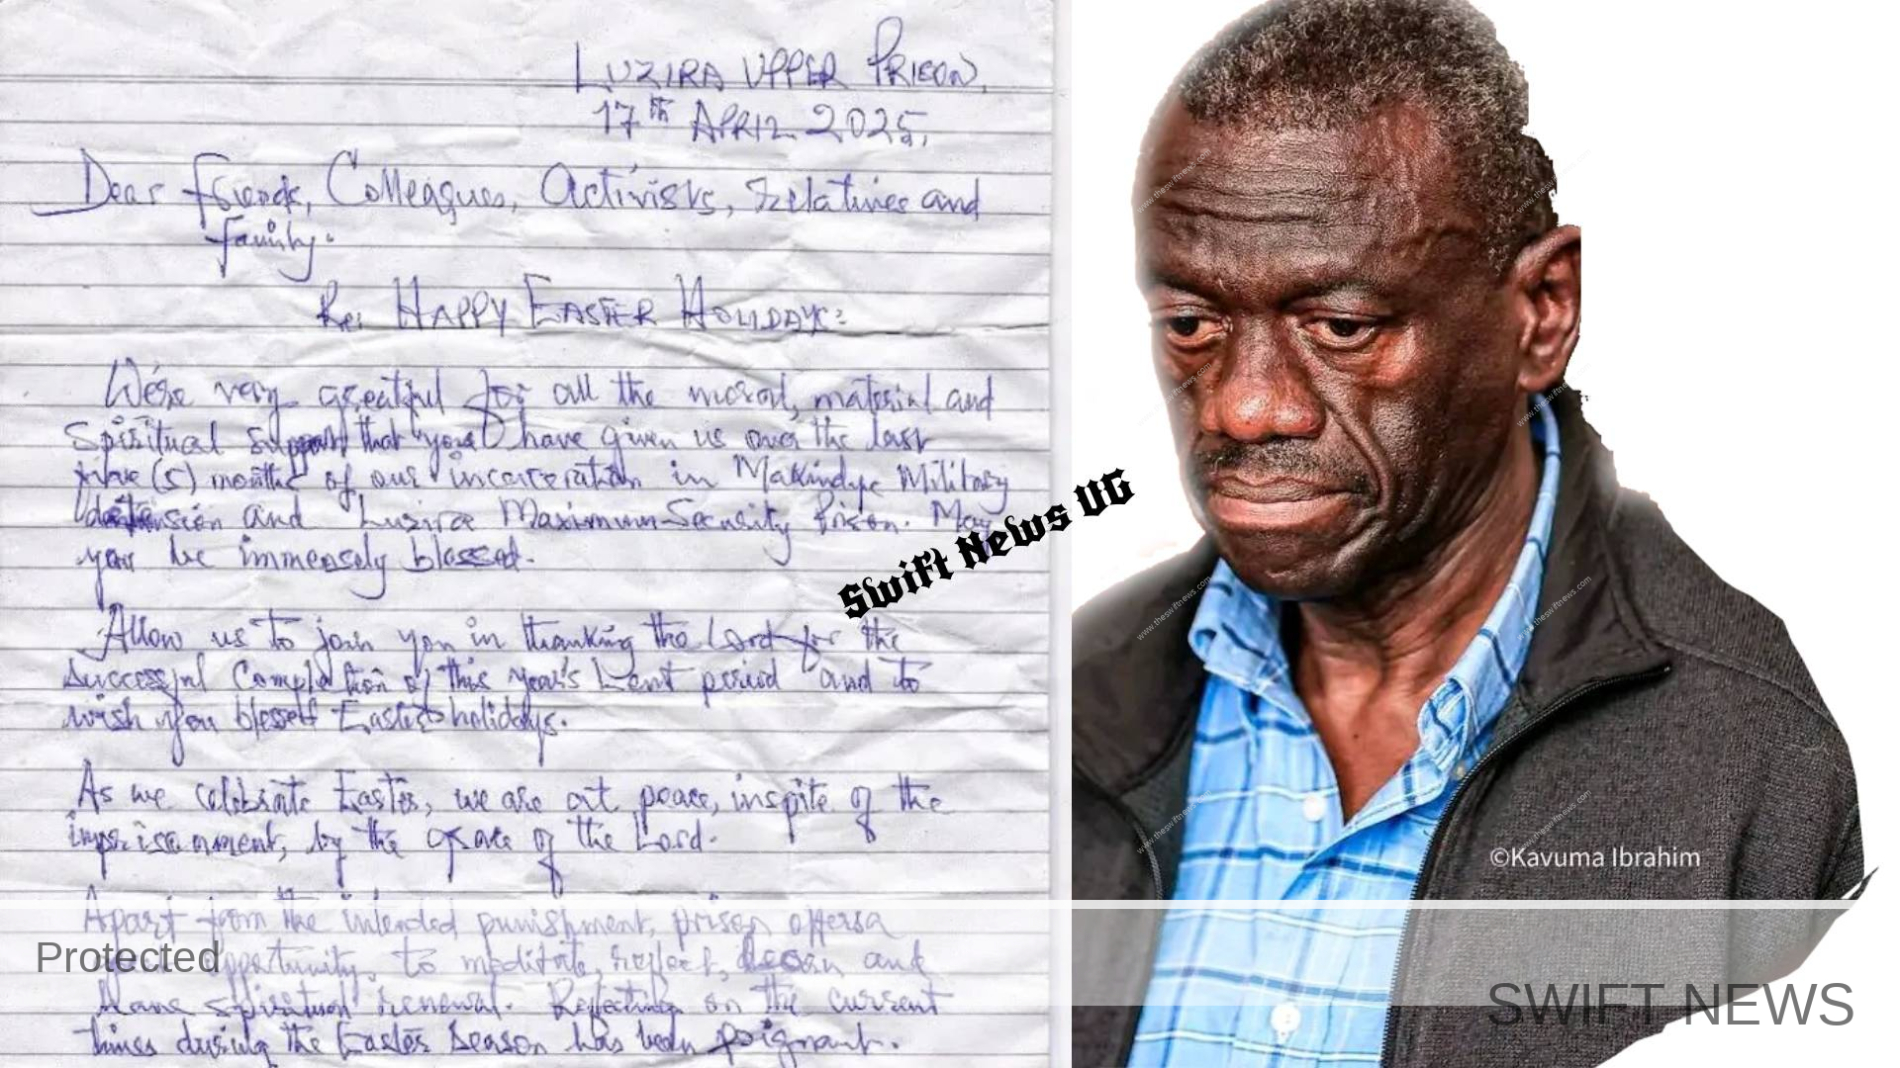 LUZIRA UPPER PRISON,
17TH APRIL 2025,
Dear friends, Colleagues, Activists, Relatives and
family.
Re: HAPPY EASTER HOLIDAYS:
We're very greatful for all the moral, material and
Spiritual support that you have given us over the last
five (5) months of our incarceration in Makindye Military
detension and Luzira Maximum Security Prison. May
you be immensely blessed.
Allow us to join you in thanking the Lord for the
successful Completion of this year's Lent period and to
wish you blessed Easter holidays.
As we celebrate Easter, we are at peace, inspite of the
imprisonment, by the grace of the Lord.
Apart from the intended punishment, prison offers a
opportunity, to meditate, reflect, learn and
have spiritual renewal. Reflecting on the current
times during the Easter season has been poignant.
Swift News UG
www.theswiftnews.com
©Kavuma Ibrahim
Protected
SWIFT NEWS